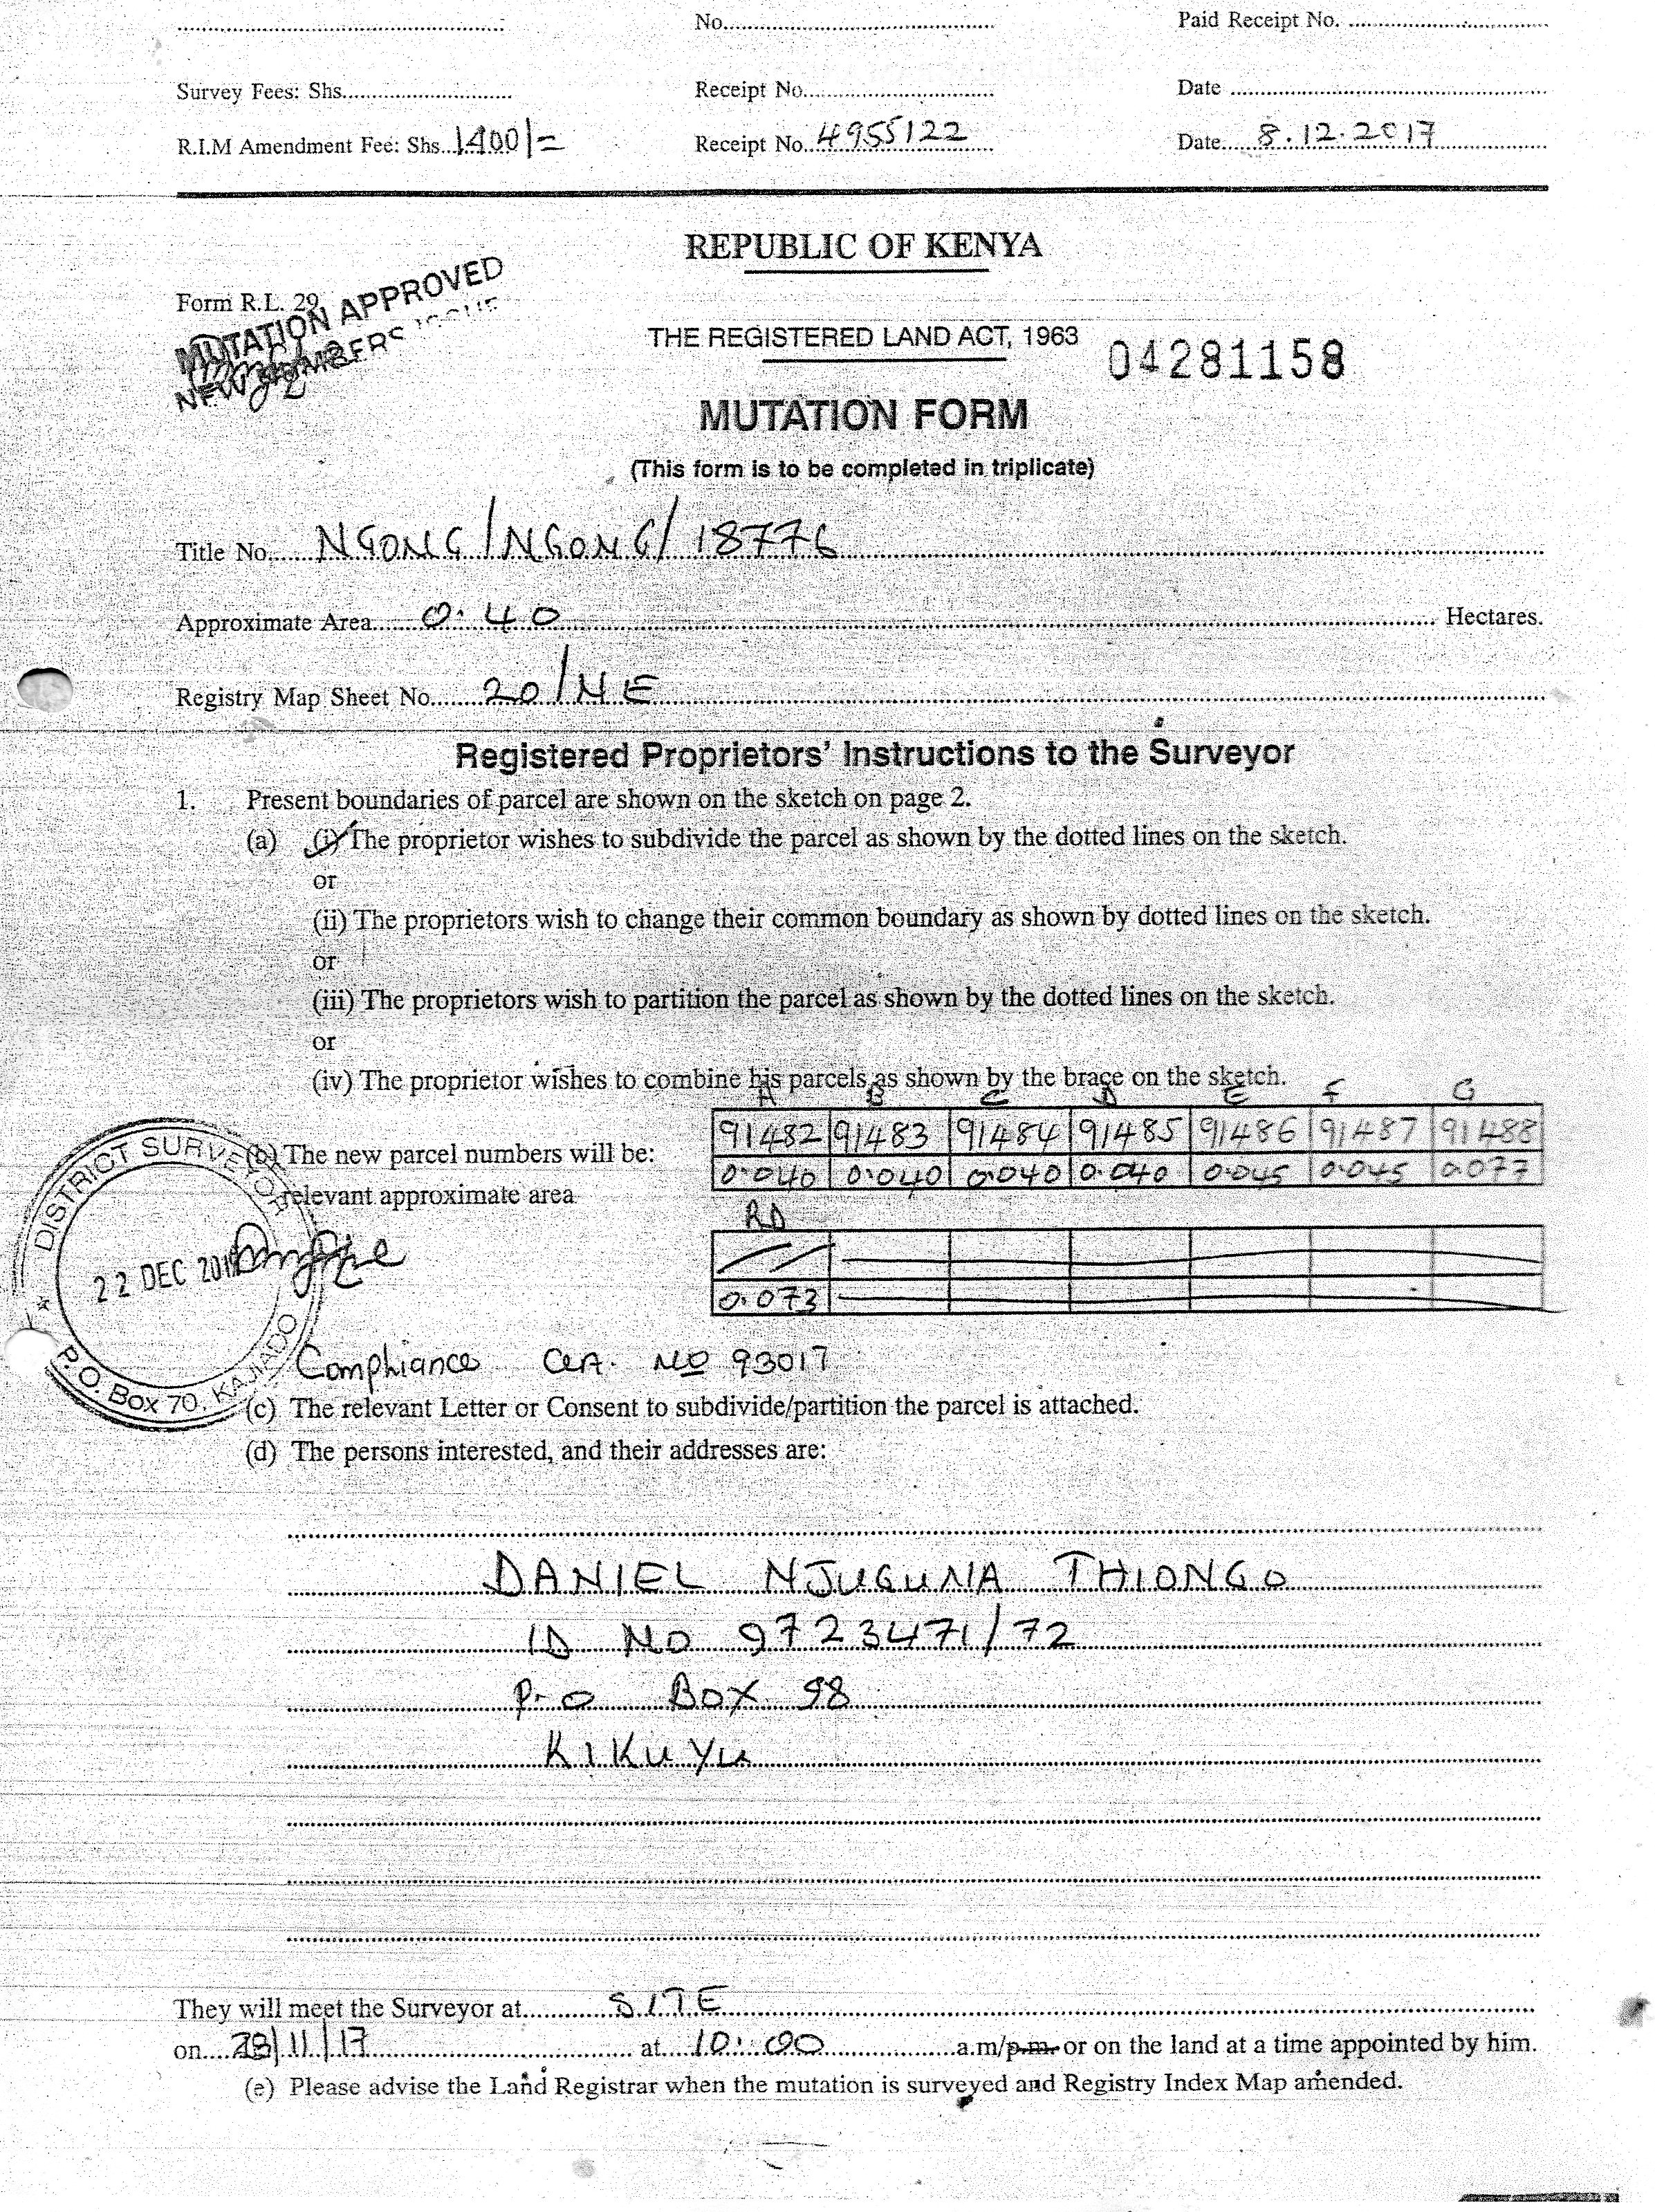 No.
Paid Receipt No.
Survey Fees: Shs.
Receipt No.
Date
R.I.M Amendment Fee: Shs. 1400/=
Receipt No. 4955122
Date. 8.12.2017
REPUBLIC OF KENYA
Form R.L. 29
MUTATION APPROVED
NEW NUMBERS
THE REGISTERED LAND ACT, 1963
04281158
MUTATION FORM
(This form is to be completed in triplicate)
Title No. NGONG/NGONG/18776
Approximate Area 0.40 Hectares.
Registry Map Sheet No. 20/NE
Registered Proprietors' Instructions to the Surveyor
1. Present boundaries of parcel are shown on the sketch on page 2.
(a) (i) The proprietor wishes to subdivide the parcel as shown by the dotted lines on the sketch.
or
(ii) The proprietors wish to change their common boundary as shown by dotted lines on the sketch.
or
(iii) The proprietors wish to partition the parcel as shown by the dotted lines on the sketch.
or
(iv) The proprietor wishes to combine his parcels as shown by the brace on the sketch.
A B C D E F G
(b) The new parcel numbers will be: 91482 91483 91484 91485 91486 91487 91488
relevant approximate area 0.040 0.040 0.040 0.040 0.045 0.045 0.077
RD
0.073
DISTRICT SURVEYOR
22 DEC
P.O. BOX 70, KAJIADO
Compliance Cert. No 93017
(c) The relevant Letter or Consent to subdivide/partition the parcel is attached.
(d) The persons interested, and their addresses are:
DANIEL NJUGUNA THIONGO
ID NO 9723471/72
P.O BOX 98
KIKUYU
They will meet the Surveyor at SITE
on 28/11/17 at 10:00 a.m/p.m. or on the land at a time appointed by him.
(e) Please advise the Land Registrar when the mutation is surveyed and Registry Index Map amended.